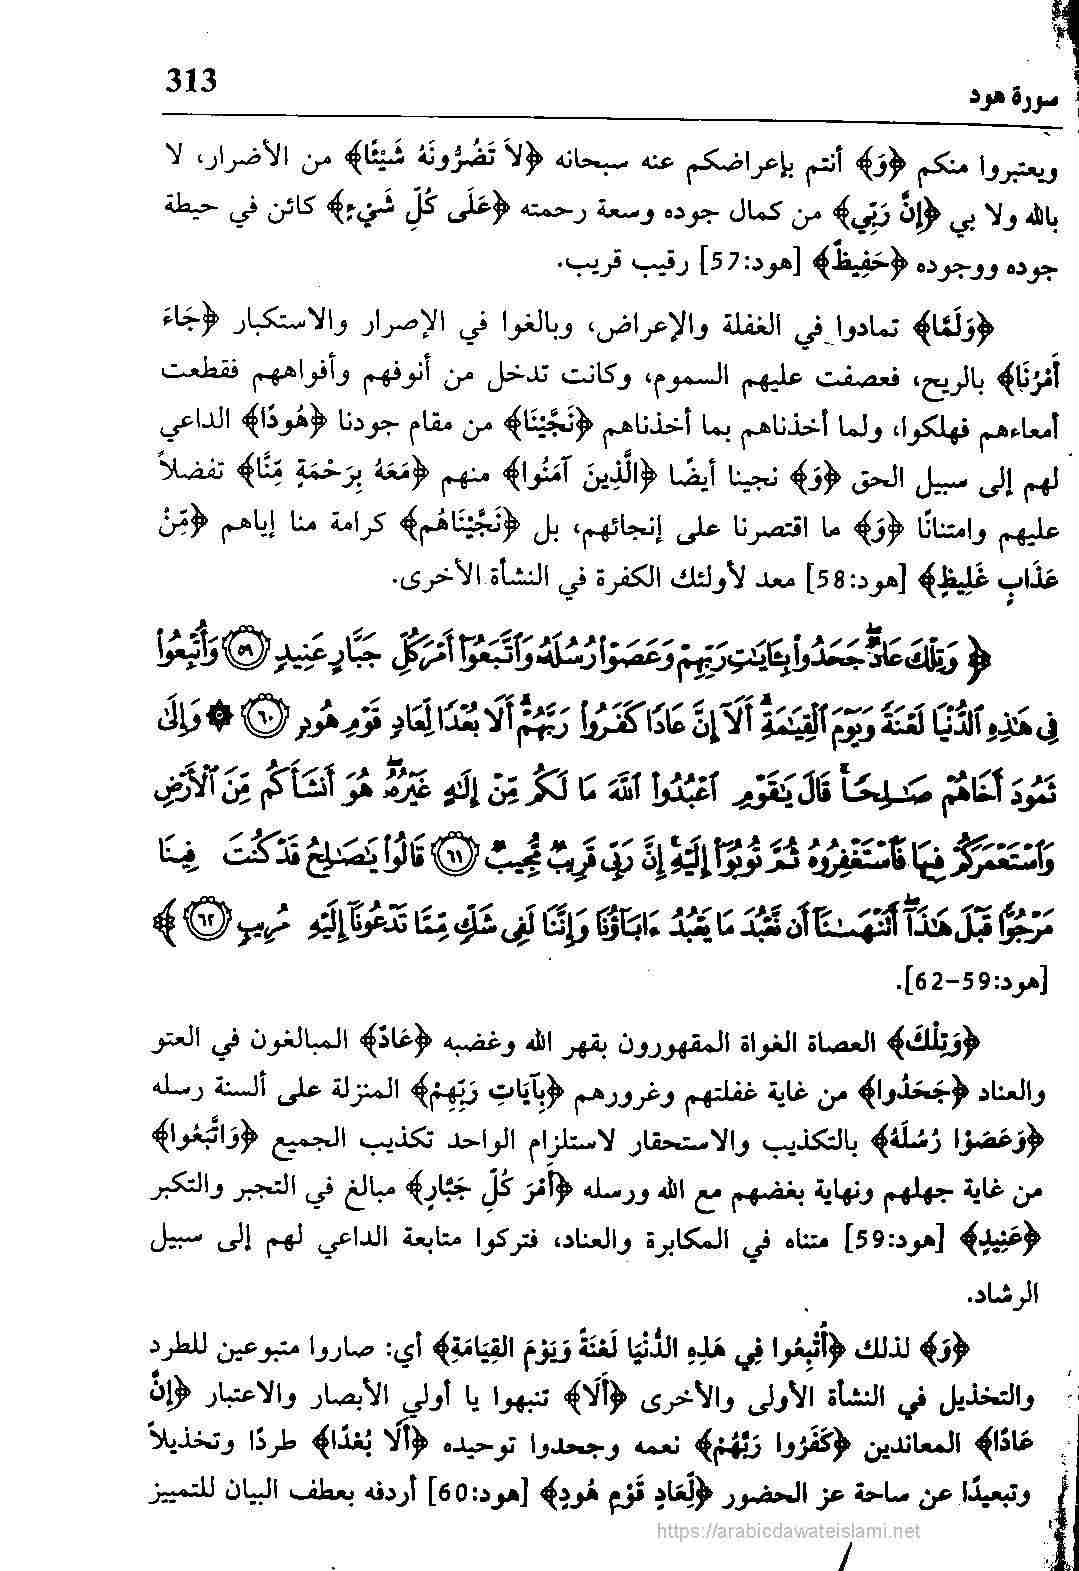 313
سورة هود
ويعتبروا منكم ﴿وَ﴾ أنتم بإعراضكم عنه سبحانه ﴿لاَ تَضُرُّونَهُ شَيْئًا﴾ من الأضرار، لا
بالله ولا بي ﴿إِنَّ رَبِّي﴾ من كمال جوده وسعة رحمته ﴿عَلَى كُلِّ شَيْءٍ﴾ كائن في حيطة
جوده ووجوده ﴿حَفِيظٌ﴾ [هود:57] رقيب قريب.
﴿وَلَمَّا﴾ تمادوا في الغفلة والإعراض، وبالغوا في الإصرار والاستكبار ﴿جَاءَ
أَمْرُنَا﴾ بالريح، فعصفت عليهم السموم، وكانت تدخل من أنوفهم وأفواههم فقطعت
أمعاءهم فهلكوا، ولما أخذناهم بما أخذناهم ﴿نَجَّيْنَا﴾ من مقام جودنا ﴿هُودًا﴾ الداعي
لهم إلى سبيل الحق ﴿وَ﴾ نجينا أيضًا ﴿الَّذِينَ آمَنُوا﴾ منهم ﴿مَعَهُ بِرَحْمَةٍ مِّنَّا﴾ تفضلاً
عليهم وامتنانًا ﴿وَ﴾ ما اقتصرنا على إنجائهم، بل ﴿نَجَّيْنَاهُم﴾ كرامة منا إياهم ﴿مِّنْ
عَذَابٍ غَلِيظٍ﴾ [هود:58] معد لأولئك الكفرة في النشأة الأخرى.
﴿ وَتِلْكَ عَادٌ ۖ جَحَدُوا۟ بِـَٔايَـٰتِ رَبِّهِمْ وَعَصَوْا۟ رُسُلَهُۥ وَٱتَّبَعُوٓا۟ أَمْرَ كُلِّ جَبَّارٍ عَنِيدٍ ٥٩ وَأُتْبِعُوا۟
فِى هَـٰذِهِ ٱلدُّنْيَا لَعْنَةً وَيَوْمَ ٱلْقِيَـٰمَةِ ۗ أَلَآ إِنَّ عَادًا كَفَرُوا۟ رَبَّهُمْ ۗ أَلَا بُعْدًا لِّعَادٍ قَوْمِ هُودٍ ٦٠ ۞ وَإِلَىٰ
ثَمُودَ أَخَاهُمْ صَـٰلِحًا ۚ قَالَ يَـٰقَوْمِ ٱعْبُدُوا۟ ٱللَّهَ مَا لَكُم مِّنْ إِلَـٰهٍ غَيْرُهُۥ ۖ هُوَ أَنشَأَكُم مِّنَ ٱلْأَرْضِ
وَٱسْتَعْمَرَكُمْ فِيهَا فَٱسْتَغْفِرُوهُ ثُمَّ تُوبُوٓا۟ إِلَيْهِ ۚ إِنَّ رَبِّى قَرِيبٌ مُّجِيبٌ ٦١ قَالُوا۟ يَـٰصَـٰلِحُ قَدْ كُنتَ فِينَا
مَرْجُوًّا قَبْلَ هَـٰذَآ ۖ أَتَنْهَىٰنَآ أَن نَّعْبُدَ مَا يَعْبُدُ ءَابَآؤُنَا وَإِنَّنَا لَفِى شَكٍّ مِّمَّا تَدْعُونَآ إِلَيْهِ مُرِيبٍ ٦٢ ﴾
[هود:59-62].
﴿وَتِلْكَ﴾ العصاة الغواة المقهورون بقهر الله وغضبه ﴿عَادٌ﴾ المبالغون في العتو
والعناد ﴿جَحَدُوا﴾ من غاية غفلتهم وغرورهم ﴿بِآيَاتِ رَبِّهِمْ﴾ المنزلة على ألسنة رسله
﴿وَعَصَوْا رُسُلَهُ﴾ بالتكذيب والاستحقار لاستلزام الواحد تكذيب الجميع ﴿وَاتَّبَعُوا﴾
من غاية جهلهم ونهاية بغضهم مع الله ورسله ﴿أَمْرَ كُلِّ جَبَّارٍ﴾ مبالغ في التجبر والتكبر
﴿عَنِيدٍ﴾ [هود:59] متناه في المكابرة والعناد، فتركوا متابعة الداعي لهم إلى سبيل
الرشاد.
﴿وَ﴾ لذلك ﴿أُتْبِعُوا فِي هَذِهِ الدُّنْيَا لَعْنَةً وَيَوْمَ القِيَامَةِ﴾ أي: صاروا متبوعين للطرد
والتخذيل في النشأة الأولى والأخرى ﴿أَلَا﴾ تنبهوا يا أولي الأبصار والاعتبار ﴿إِنَّ
عَادًا﴾ المعاندين ﴿كَفَرُوا رَبَّهُمْ﴾ نعمه وجحدوا توحيده ﴿أَلَا بُعْدًا﴾ طردًا وتخذيلاً
وتبعيدًا عن ساحة عز الحضور ﴿لِّعَادٍ قَوْمِ هُودٍ﴾ [هود:60] أردفه بعطف البيان للتمييز
https://arabicdawateislami.net